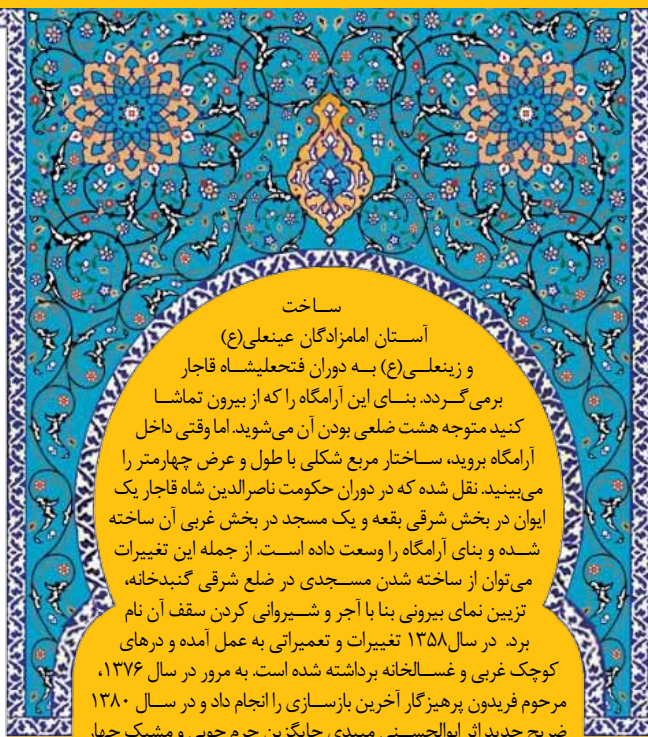 ساخت
آستان امامزادگان عینعلی(ع)
و زینعلی(ع) به دوران فتحعلیشاه قاجار
برمی‌گردد. بنای این آرامگاه را که از بیرون تماشا
کنید متوجه هشت ضلعی بودن آن می‌شوید. اما وقتی داخل
آرامگاه بروید، ساختار مربع شکلی با طول و عرض چهارمتر را
می‌بینید. نقل شده که در دوران حکومت ناصرالدین شاه قاجار یک
ایوان در بخش شرقی بقعه و یک مسجد در بخش غربی آن ساخته
شده و بنای آرامگاه را وسعت داده است. از جمله این تغییرات
می‌توان از ساخته شدن مسجدی در ضلع شرقی گنبدخانه،
تزیین نمای بیرونی بنا با آجر و شیروانی کردن سقف آن نام
برد. در سال۱۳۵۸ تغییرات و تعمیراتی به عمل آمده و درهای
کوچک غربی و غسالخانه برداشته شده است. به مرور در سال ۱۳۷۶،
مرحوم فریدون پرهیزگار آخرین بازسازی را انجام داد و در سال ۱۳۸۰
ضریح جدید اثر ابوالحسنی میبدی جایگزین حرم چوبی و مشبک چهار